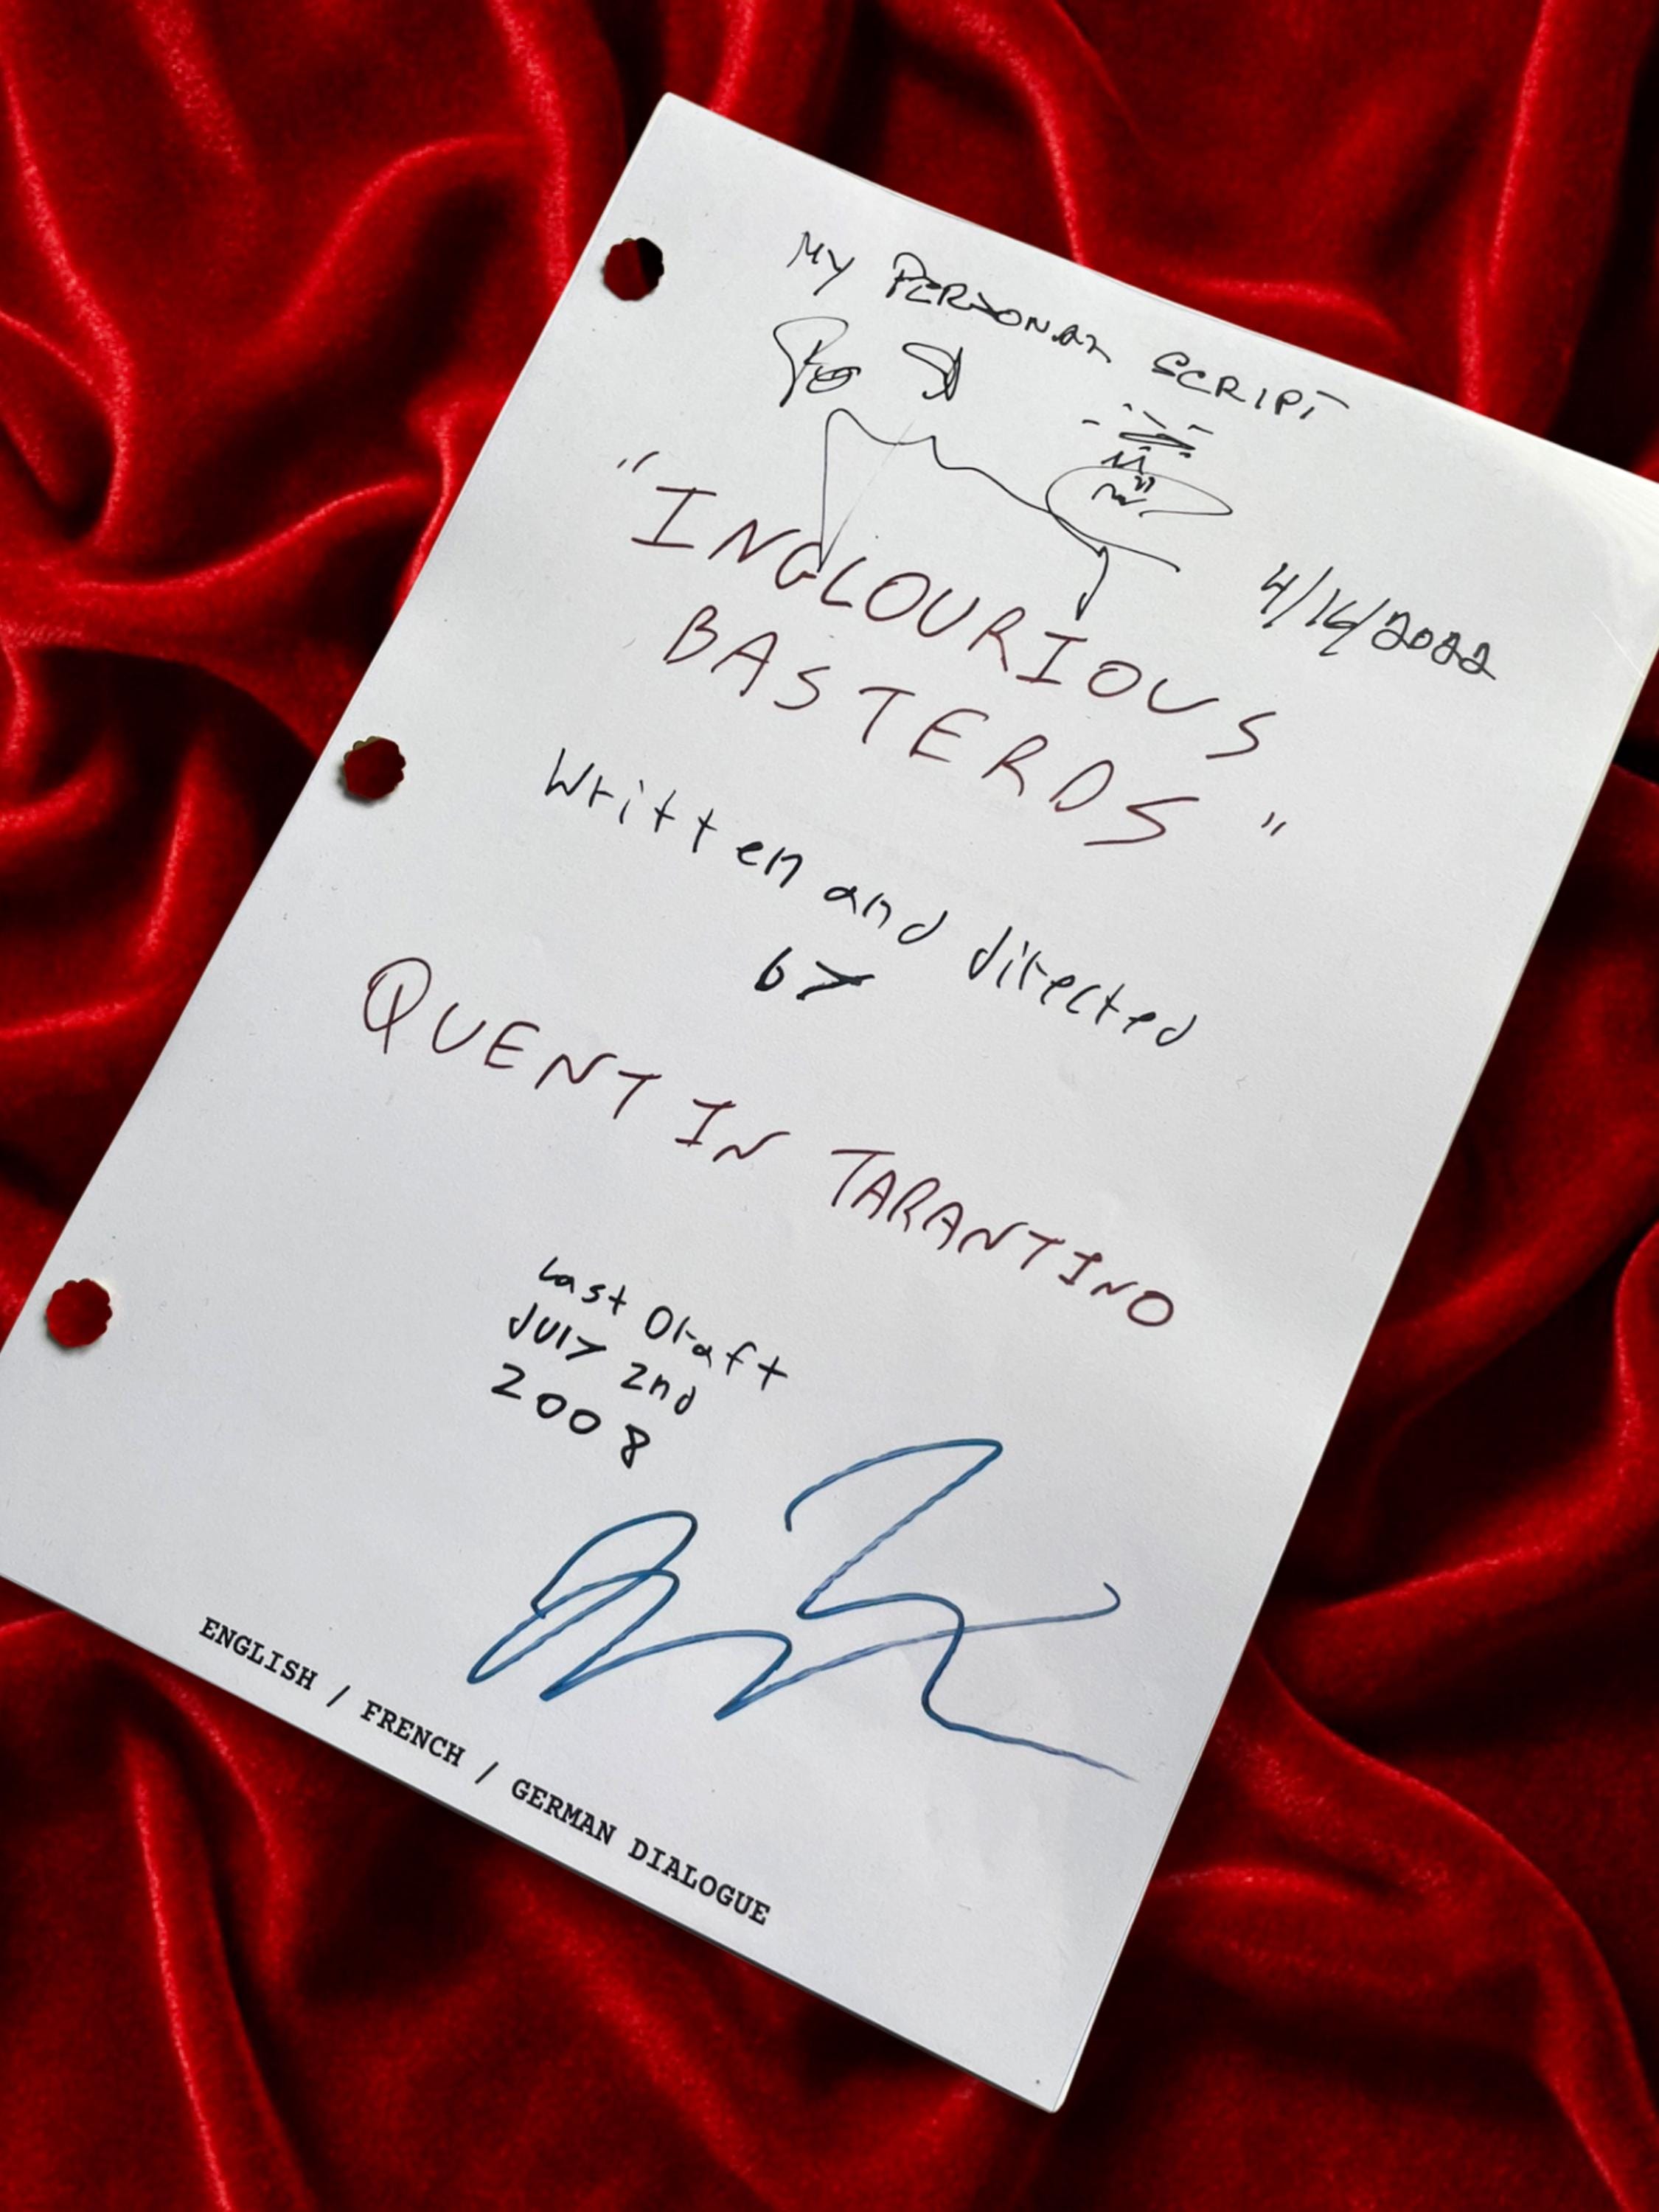 MY PERSONAL SCRIPT
4/16/2022
"INGLOURIOUS
BASTERDS"
Written and directed
by
QUENTIN TARANTINO
Last Draft
July 2nd
2008
ENGLISH / FRENCH / GERMAN DIALOGUE